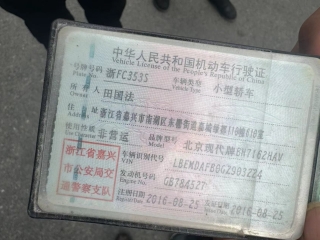 中华人民共和国机动车行驶证
Vehicle License of the People's Republic of China
号牌号码 浙FC3535 车辆类型 小型轿车
Plate No. Vehicle Type
所有人 田国法
Owner
住址 浙江省嘉兴市南湖区东栅街道嘉城绿都119幢610室
Address
使用性质 非营运 品牌型号 北京现代牌BH7162HAV
浙江省嘉兴 车辆识别代号
VIN
市公安局交 发动机号码 GB784527
Engine No.
通警察支队 注册日期 2016-08-25 发证日期 2016-08-25